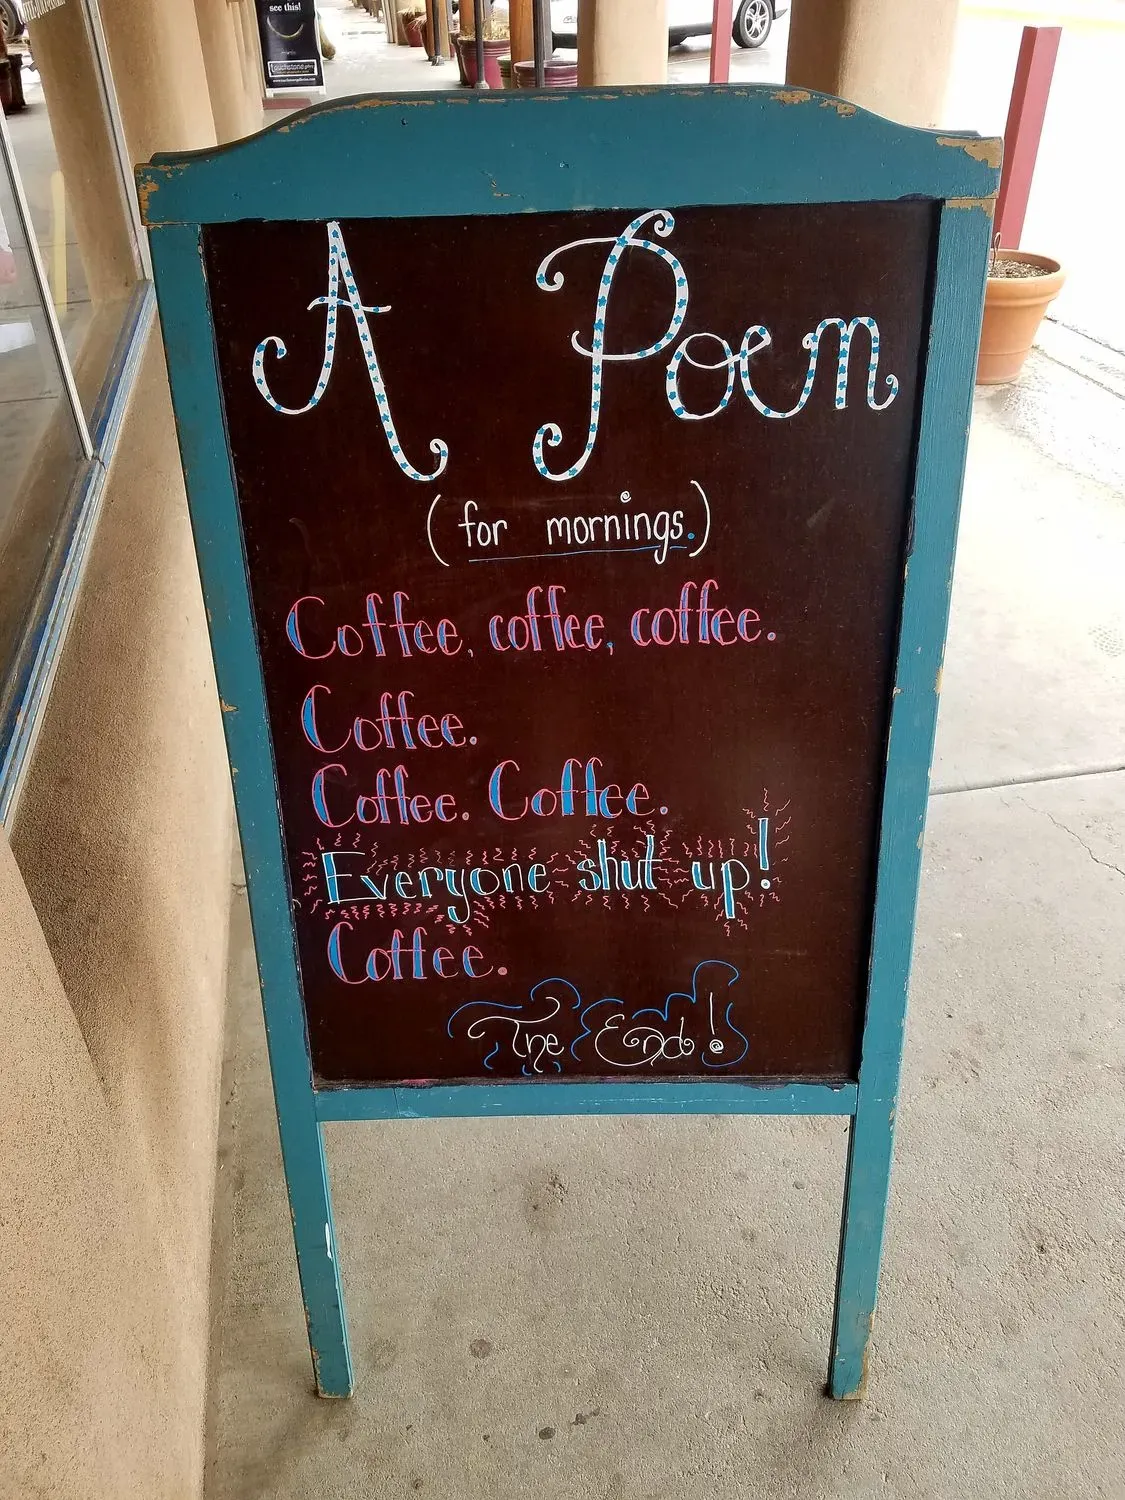 see this!
A Poem
(for mornings.)
Coffee, coffee, coffee.
Coffee.
Coffee. Coffee.
Everyone shut up!
Coffee.
The End!